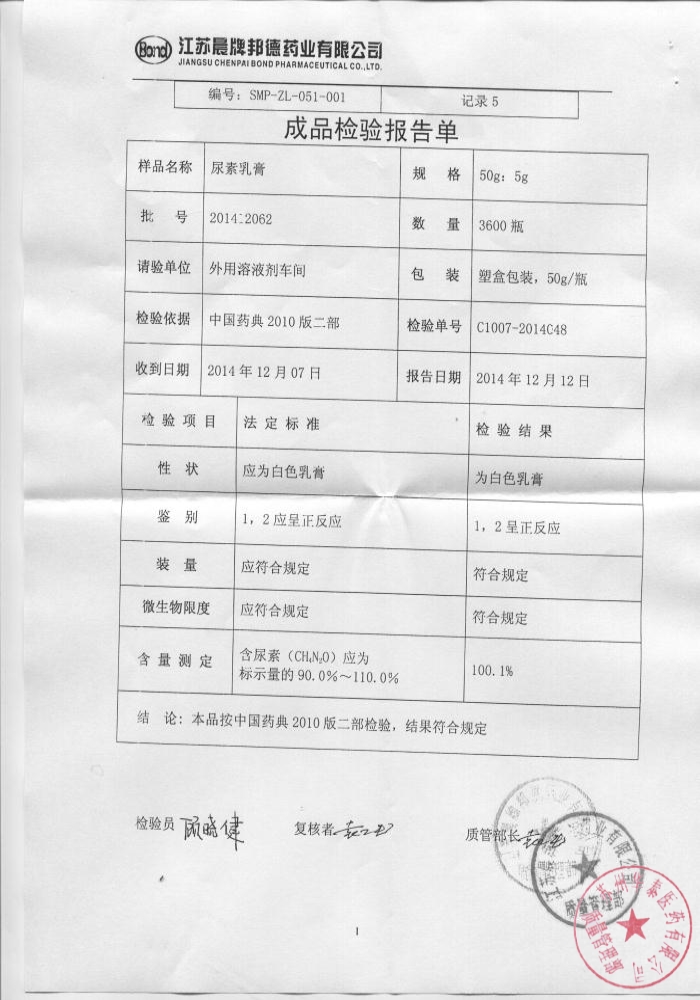 Bond 江苏晨牌邦德药业有限公司
JIANGSU CHENPAI BOND PHARMACEUTICAL CO.,LTD.
编号：SMP-ZL-051-001 记录 5
成品检验报告单
样品名称 尿素乳膏 规 格 50g：5g
批 号 201412062 数 量 3600 瓶
请验单位 外用溶液剂车间 包 装 塑盒包装，50g/瓶
检验依据 中国药典 2010 版二部 检验单号 C1007-2014C48
收到日期 2014 年 12 月 07 日 报告日期 2014 年 12 月 12 日
检 验 项 目 法 定 标 准 检 验 结 果
性 状 应为白色乳膏 为白色乳膏
鉴 别 1，2 应呈正反应 1，2 呈正反应
装 量 应符合规定 符合规定
微生物限度 应符合规定 符合规定
含 量 测 定 含尿素（CH₄N₂O）应为
标示量的 90.0％～110.0％ 100.1％
结 论: 本品按中国药典 2010 版二部检验，结果符合规定
检验员 顾晓健 复核者 质管部长
质量管理部
医药有限公司
质量管理部
1